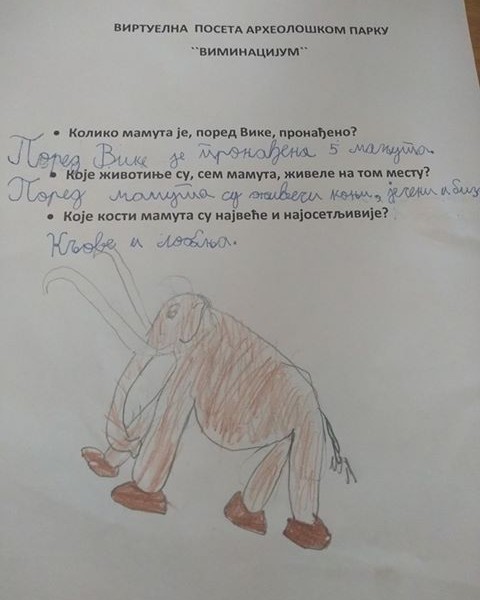 ВИРТУЕЛНА ПОСЕТА АРХЕОЛОШКОМ ПАРКУ
``ВИМИНАЦИЈУМ``
• Колико мамута је, поред Вике, пронађено?
Поред Вике је пронађена 5 мамута.
• Које животиње су, сем мамута, живеле на том месту?
Поред мамута су живели коњи, јелени и биз
• Које кости мамута су највеће и најосетљивије?
Кљове и лобања.